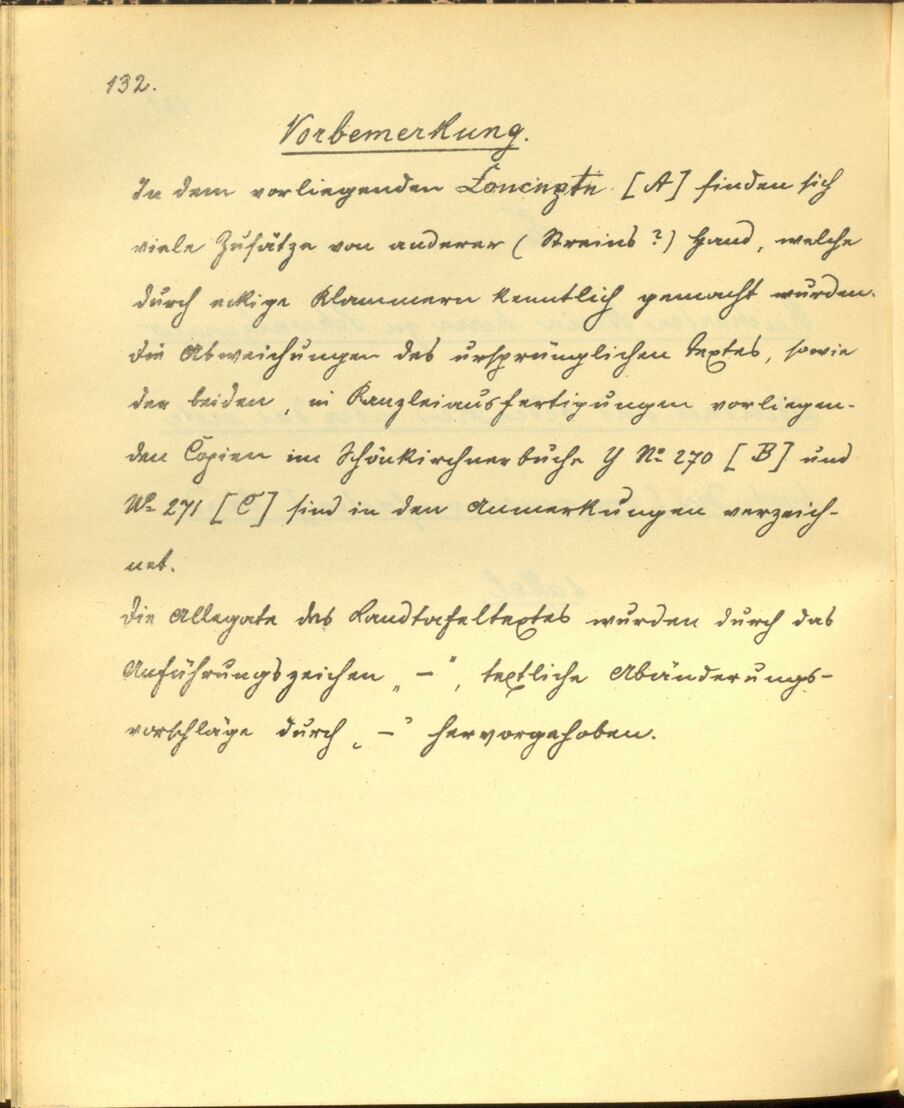 132.
Vorbemerkung.
In dem vorliegenden Concepte [A] finden sich
viele Zusätze von anderer (Streins?) Hand, welche
durch eckige Klammern kenntlich gemacht wurden.
Die Abweichungen des ursprünglichen Textes, sowie
der beiden, in Kanzleiausfertigungen vorliegen-
den Copien im Schönkirchnerbuche Y No 270 [B] und
No 271 [C] sind in den Anmerkungen verzeich-
net.
Die Allegate des Landtafeltextes wurden durch das
Anführungszeichen „ — “, textliche Abänderungs-
vorschläge durch ‚ — ’ hervorgehoben.